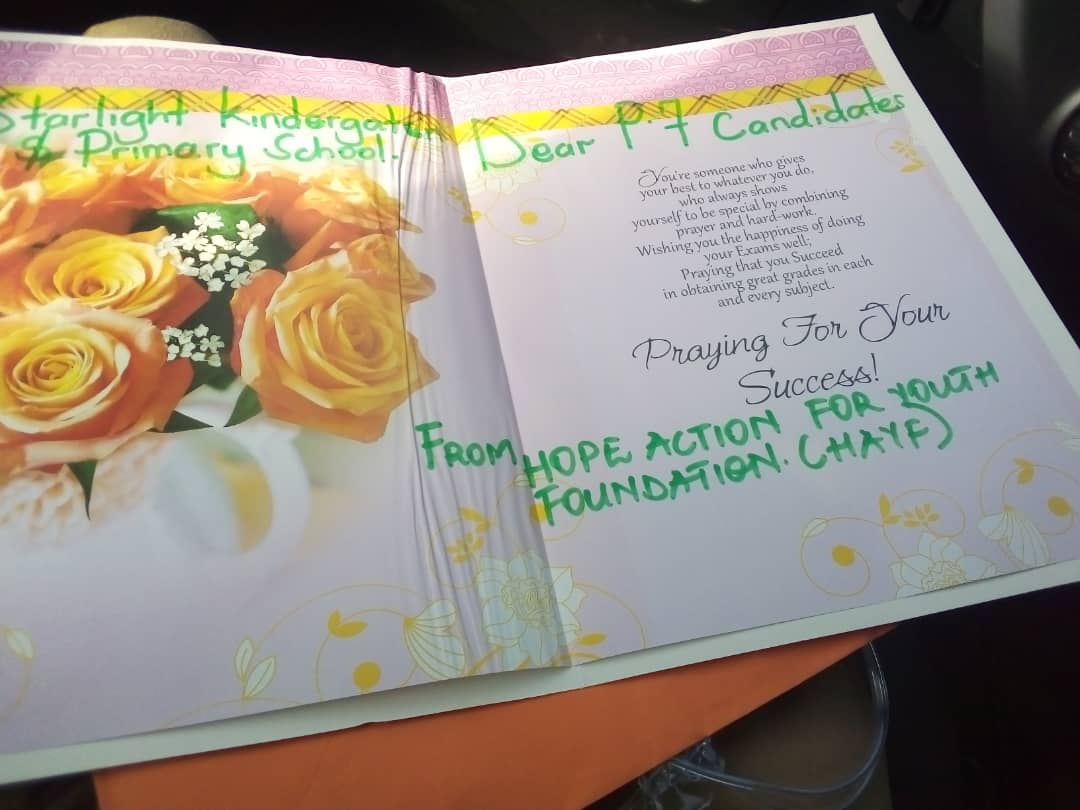 Starlight Kindergaten
& Primary School.
Dear P.7 Candidates
You're someone who gives
your best to whatever you do,
who always shows
yourself to be special by combining
prayer and hard-work.
Wishing you the happiness of doing
your Exams well;
Praying that you Succeed
in obtaining great grades in each
and every subject.
Praying For Your
Success!
FROM HOPE ACTION FOR YOUTH
FOUNDATION. (HAYF)